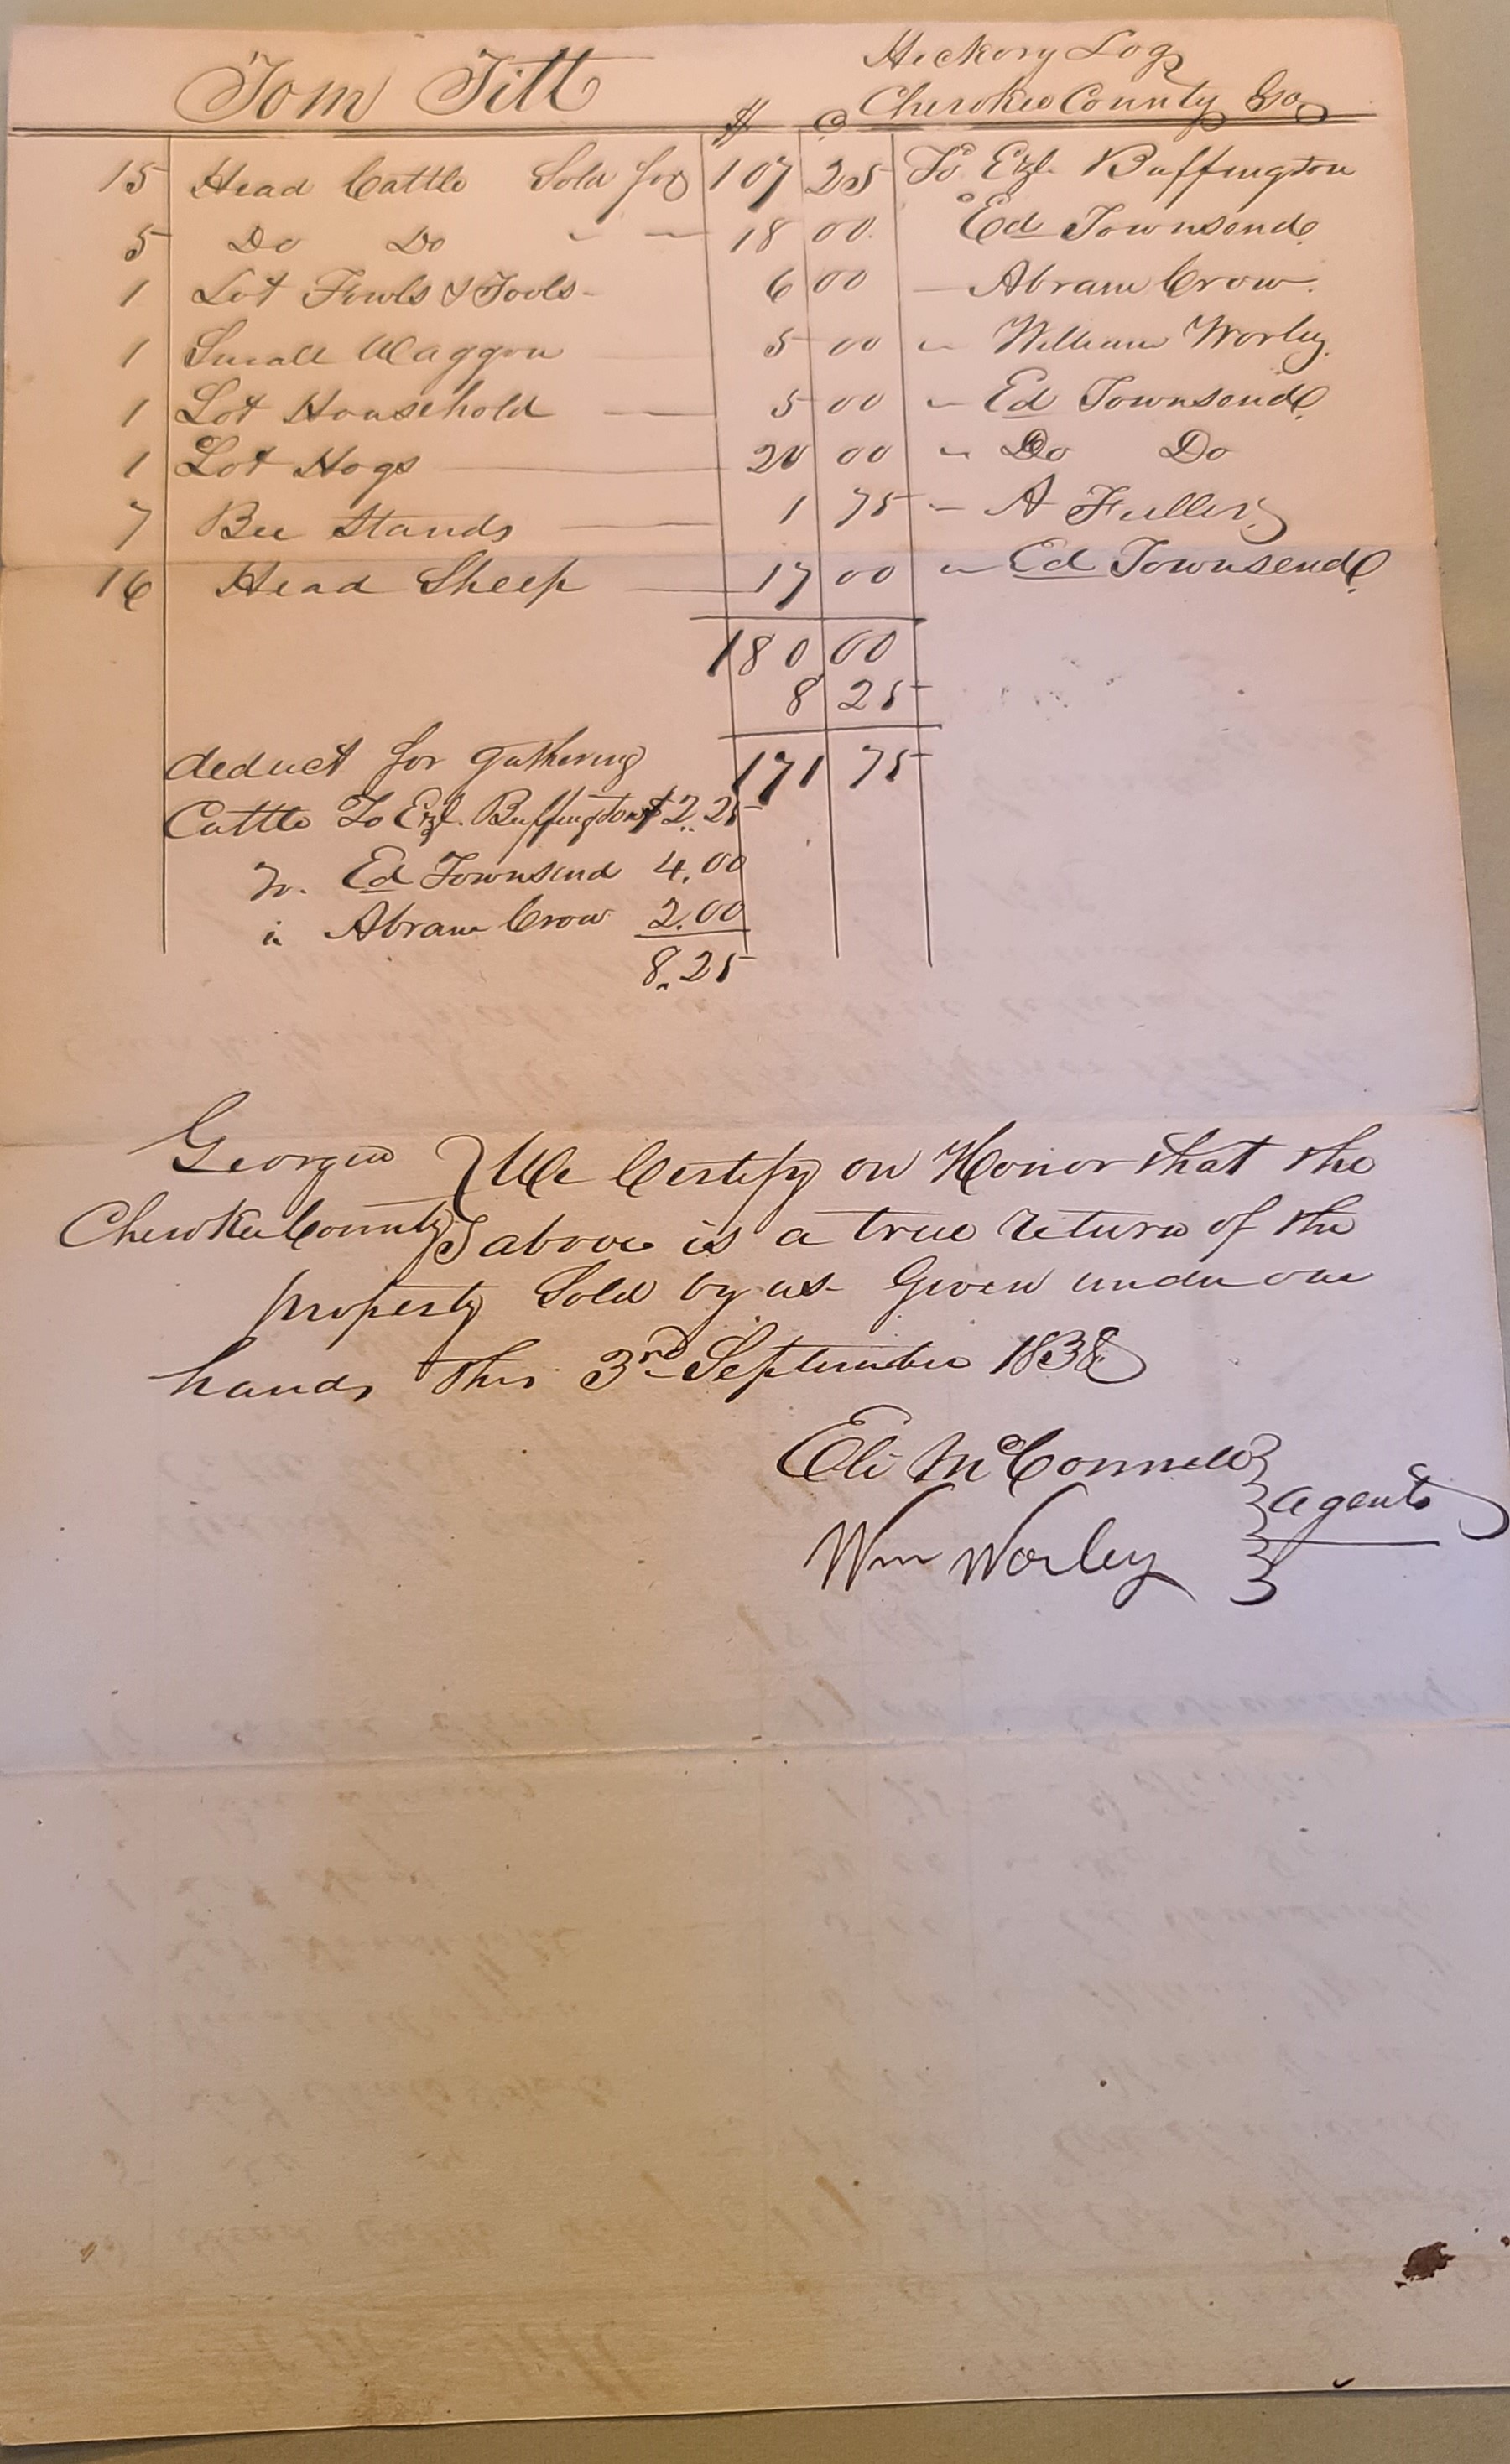 Tom Titt Hickory Log
$ C Cherokee County Ga
15 Head Cattle Sold for 107 25 To Ezl. Buffington
5 Do Do " — 18 00 Ed Townsend
1 Lot Fowls & Tools - 6 00 — Abram Crow.
1 Small Waggon 5 00 " William Worley.
1 Lot Household — 5 00 " Ed Townsend
1 Lot Hogs — 20 00 " Do Do
7 Bee Stands — 1 75 " A Fuller
16 Head Sheep — 17 00 " Ed Townsend
180 00
8 25
deduct for gathering 171 75
Cattle To Ezl. Buffington $2.25
To. Ed Townsend 4.00
" Abram Crow 2.00
8.25
Georgia } We Certify on Honor that the
Cherokee County } above is a true return of the
property Sold by us - Given under our
hands this 3rd September 1838
Eli McConnell }
} agents
Wm Worley }